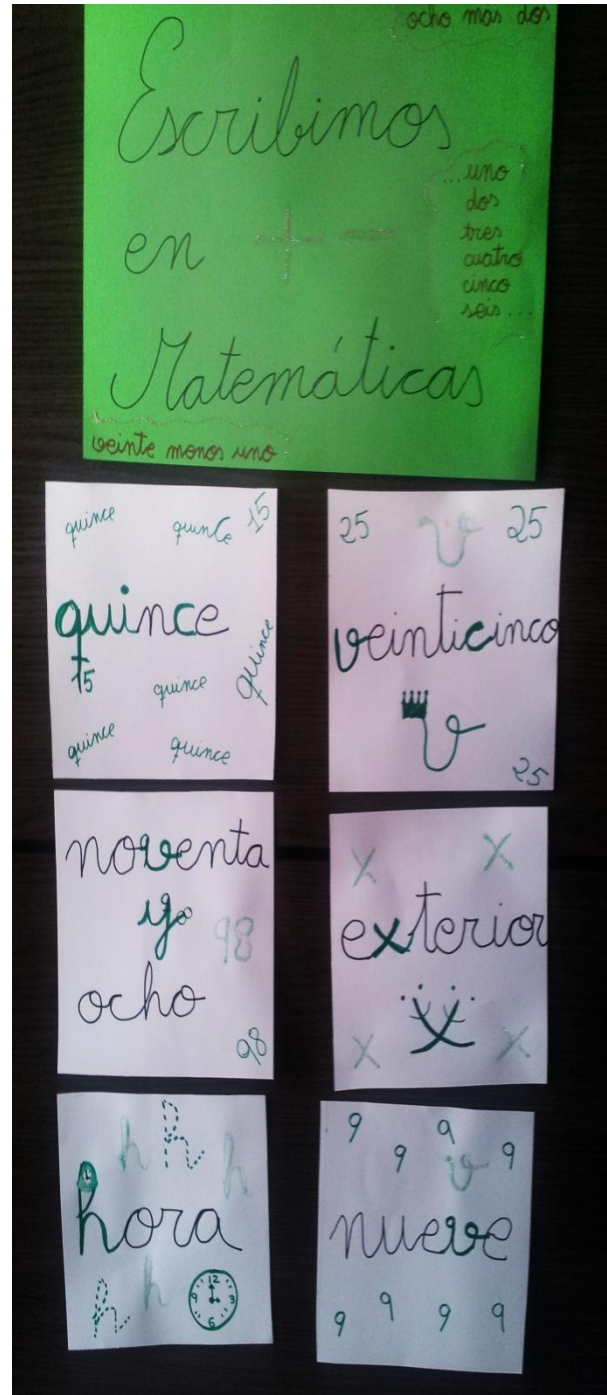 ocho mas dos
Escribimos
...uno
dos
tres
cuatro
cinco
seis...
en + -
Matemáticas
veinte menos uno
quince quince 15
quince
15 quince quince
quince quince
25 v 25
veinticinco
v
25
noventa
y
98
ocho
98
x x
exterior
x
x x
h h h
hora
h h 12
9 3
6
9 9 9 9
v
nueve
9 9 9 9